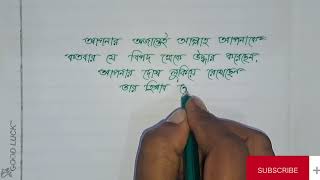 আপনার অজান্তেই আল্লাহ আপনাকে
কতবার যে বিপদ থেকে উদ্ধার করেছেন,
আপনার দোষ লুকিয়ে রেখেছেন
তার হিসাব
GOOD LUCK
SUBSCRIBE